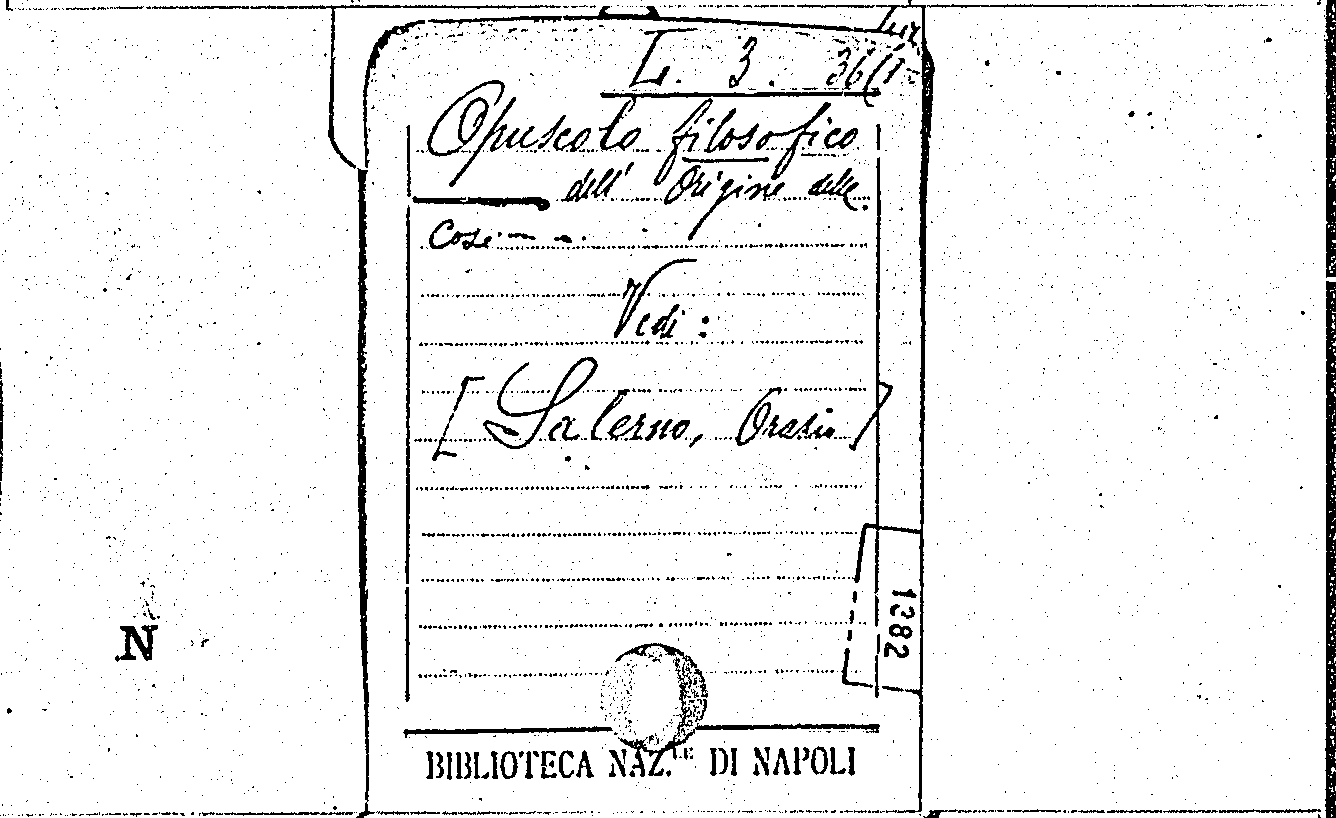 L. 3. 36(1
Opuscolo filosofico
dell' Origine delle
Cose - -.
Vedi :
[Salerno, Orazio]
1382
N
BIBLIOTECA NAZ.LE DI NAPOLI